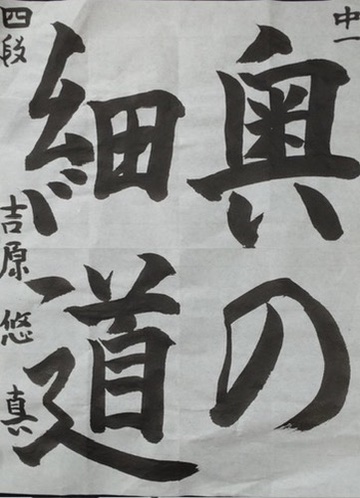 中一
奥の
細道
四段 吉原悠真